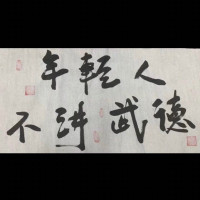 年輕人
不讲武德